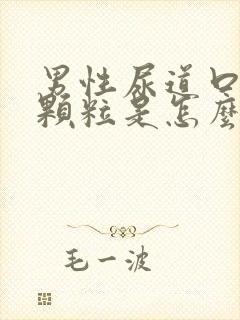 男性尿道口
顆粒是怎麼
毛一波